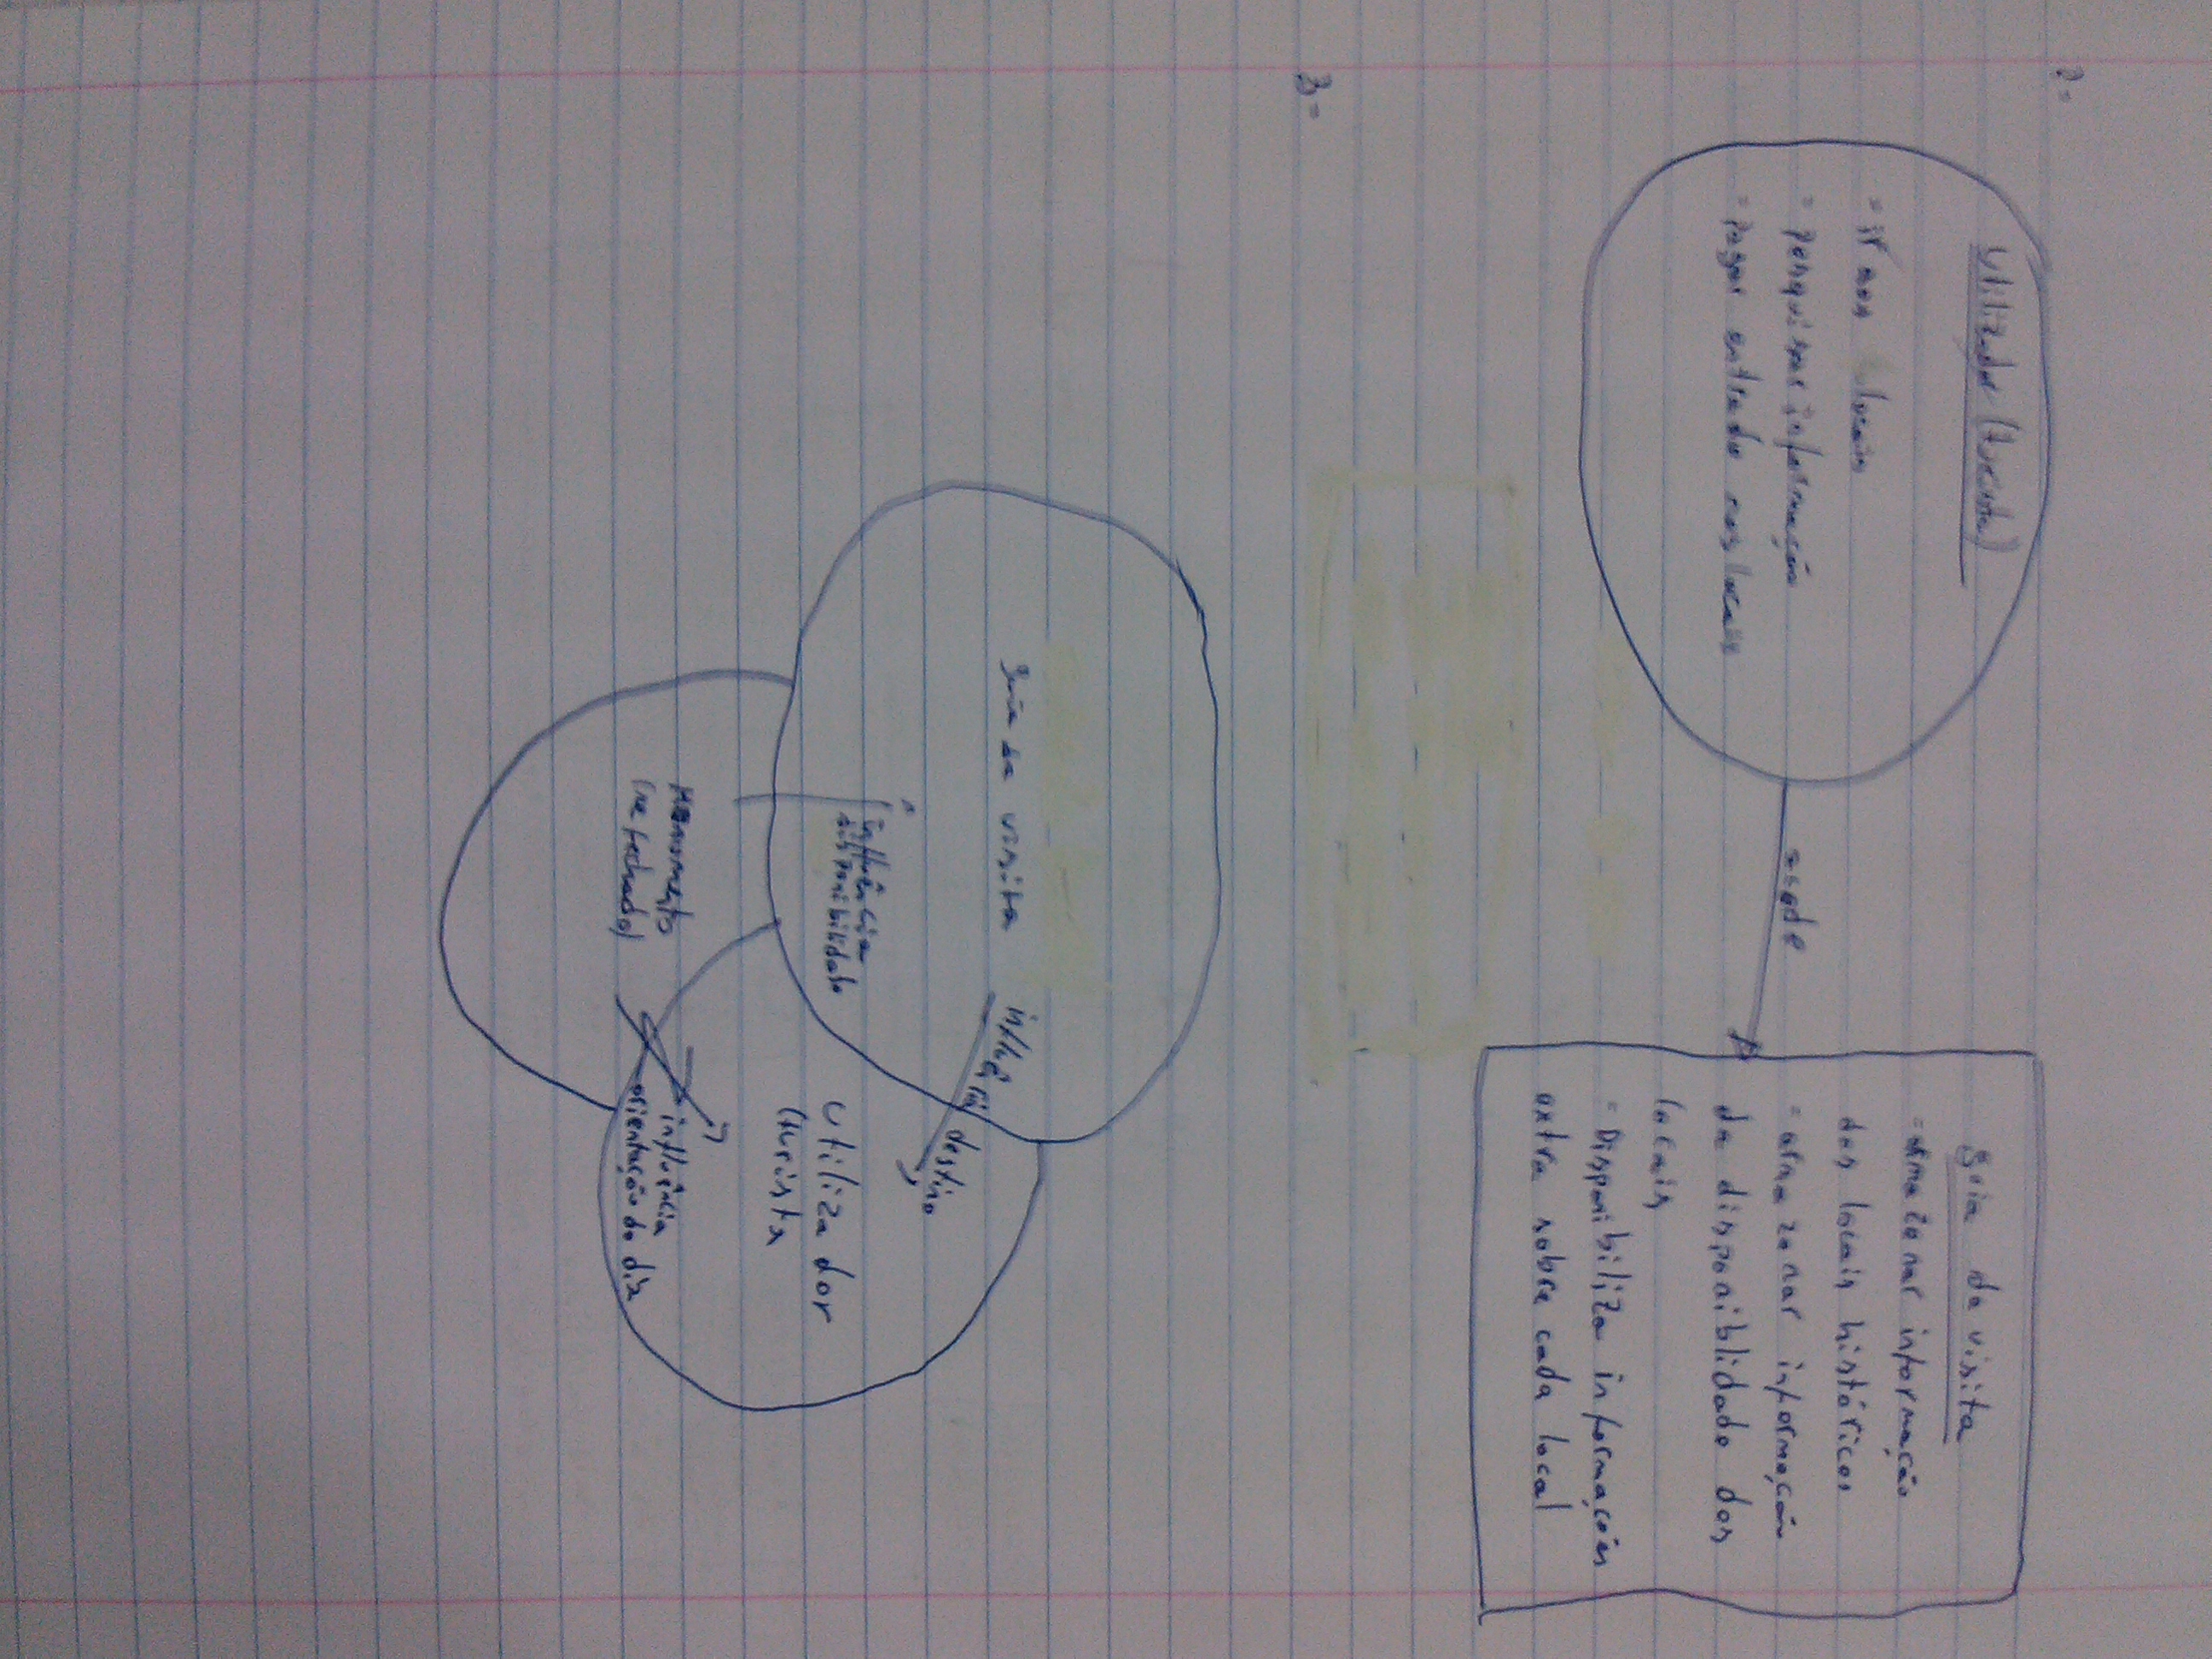 2-
Utilizador (turista)
- ir aos locais
- pesquisar informação
- pagar entrada nos locais
acede
guia da visita
- armazenar informação
dos locais históricos
- armazenar informação
da disponiblidade dos
locais
- Disponibiliza informações
extra sobre cada local
3-
guia da visita
influência
destino
influência
disponibilidade
Utilizador
(turista
Monumento
fechado)
influência
orientação do dia